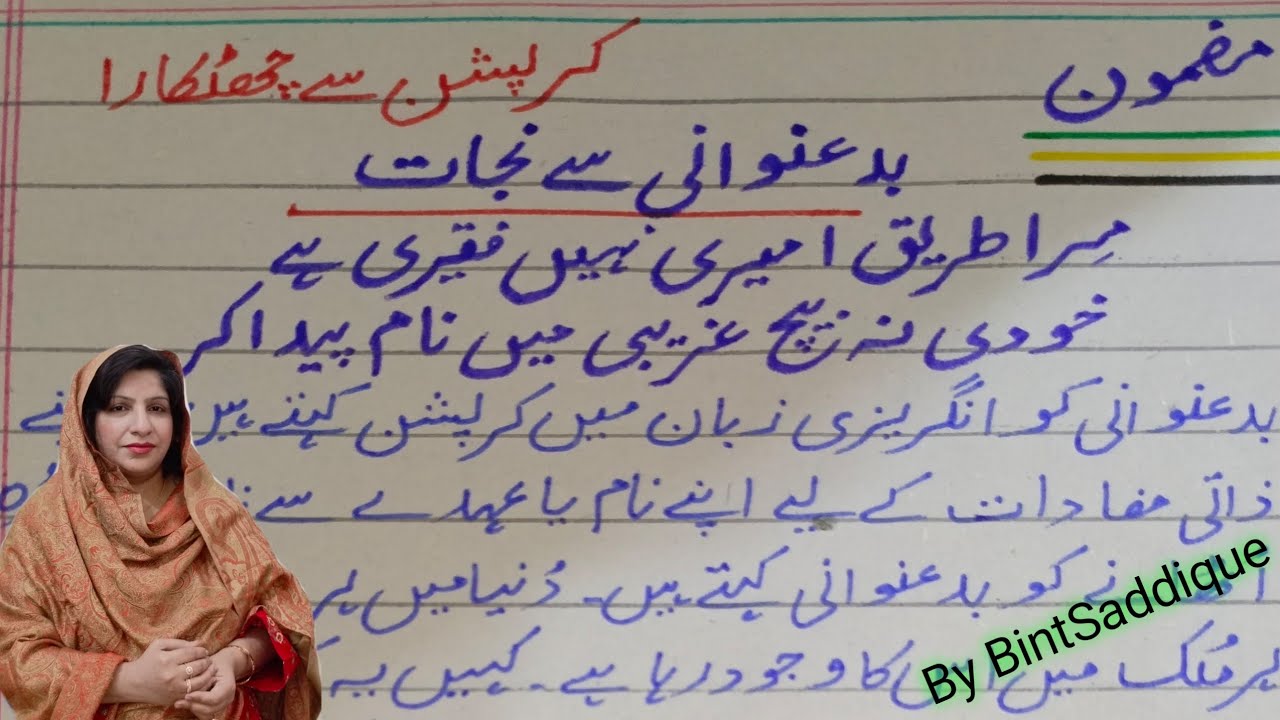 مضمون
کرپشن سے چھٹکارا
بدعنوانی سے نجات
مرا طریق امیری نہیں فقیری ہے
خودی نہ بیچ غریبی میں نام پیدا کر
بدعنوانی کو انگریزی زبان میں کرپشن کہتے ہیں
ذاتی مفادات کے لیے اپنے نام یا عہدے سے
نے کو بدعنوانی کہتے ہیں۔ دُنیا میں ہر
ہر مُلک میں کا وجود رہا ہے۔ کہیں یہ
By BintSaddique